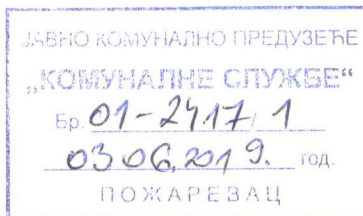 ЈАВНО КОМУНАЛНО ПРЕДУЗЕЋЕ
„КОМУНАЛНЕ СЛУЖБЕ“
Бр. 01-2417/1
03 06. 2019. год.
ПОЖАРЕВАЦ